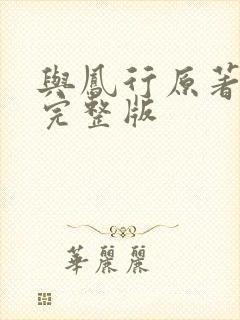 與鳳行原著
完整版
華麗麗